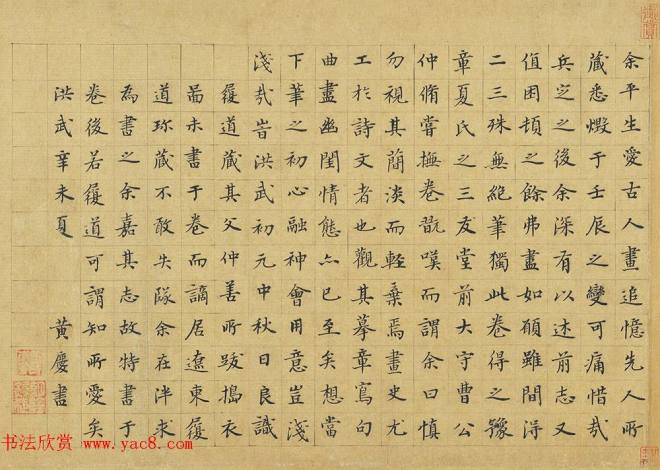 余平生愛古人畫追憶先人所
藏悉燬于壬辰之變可痛惜哉
兵定之後余深有以述前志又
值困頓之餘弗盡如願雖間得
二三殊無絕筆獨此卷得之豫
章夏氏之三友堂前大宇曹公
仲脩嘗撫卷翫嘆而謂余曰慎
勿視其蕳淡而輕棄焉畫史尤
工於詩文者也觀其摹章寫句
曲盡幽閨情態亦已至矣想當
下筆之初心融神會用意豈淺
淺哉旹洪武初元中秋日良識
履道藏其父仲善所跋搗衣
啚未書于卷而謫居遼東履
道珎藏不敢失隊余在泮求
為書之余嘉其志故特書于
卷後若履道可謂知所愛矣
洪武辛未夏 黃慶書
书法欣赏 www.yac8.com